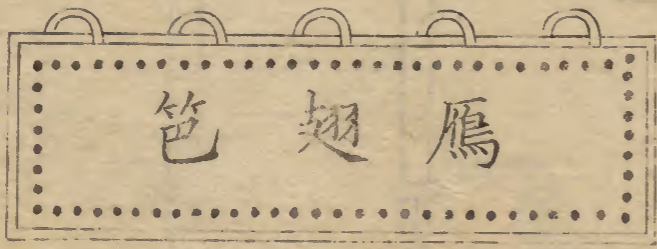 鴈翅笆